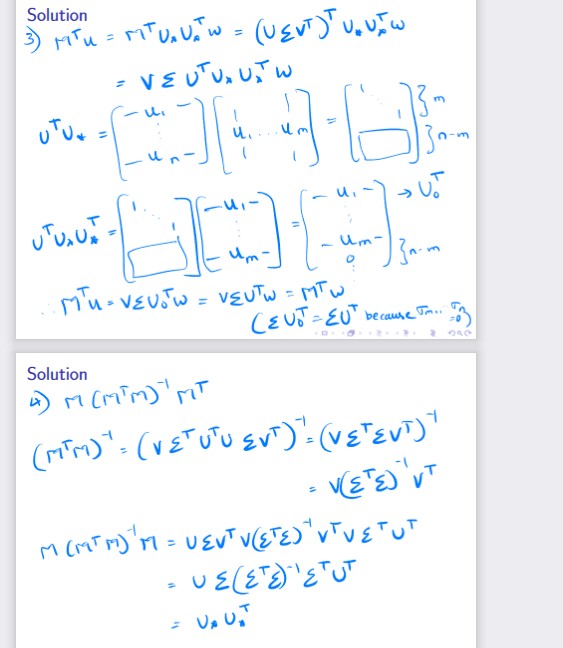 Solution
3) MᵀU = MᵀU*U*ᵀw = (UΣVᵀ)ᵀ U*U*ᵀw
= VΣUᵀU*U*ᵀw
UᵀU* = [ -u₁- ⋮ -uₙ- ] [ | | u₁ ... uₘ | | ] = [ 1 ⋱ 1 ] }m }n-m
UᵀU*U*ᵀ = [ 1 ⋱ 1 ] [ -u₁- ⋮ -uₘ- ] = [ -u₁- ⋮ -uₘ- 0 ⋮ ] }n-m → U₀ᵀ
∴ Mᵀu = VΣU₀ᵀw = VΣUᵀw = Mᵀw
(ΣU₀ᵀ = ΣUᵀ because σₘ... σₙ = 0)
Solution
4) M(MᵀM)⁻¹Mᵀ
(MᵀM)⁻¹ = (VΣᵀUᵀUΣVᵀ)⁻¹ = (VΣᵀΣVᵀ)⁻¹
= V(ΣᵀΣ)⁻¹Vᵀ
M(MᵀM)⁻¹M = UΣVᵀV(ΣᵀΣ)⁻¹VᵀVΣᵀUᵀ
= UΣ(ΣᵀΣ)⁻¹ΣᵀUᵀ
= U*U*ᵀ